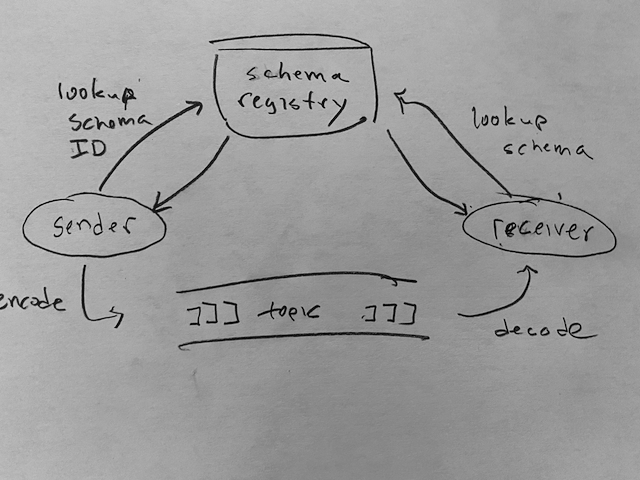 schema
registry
lookup
schema
ID
lookup
schema
sender
receiver
encode
topic
decode